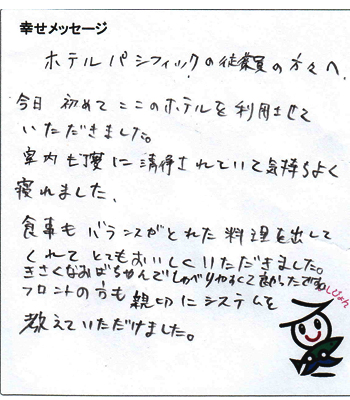 幸せメッセージ
ホテルパシフィックの従業員の方々へ
今日 初めて ここのホテルを利用させて
いただきました。
室内も丁寧に清掃されていて気持ちよく
寝れました、
食事も バランスがとれた 料理を出して
くれて とてもおいしくいただきました。
きさくなおばちゃんでしゃべりやすくて
フロントの方も 親切にシステムを
教えていただけました。